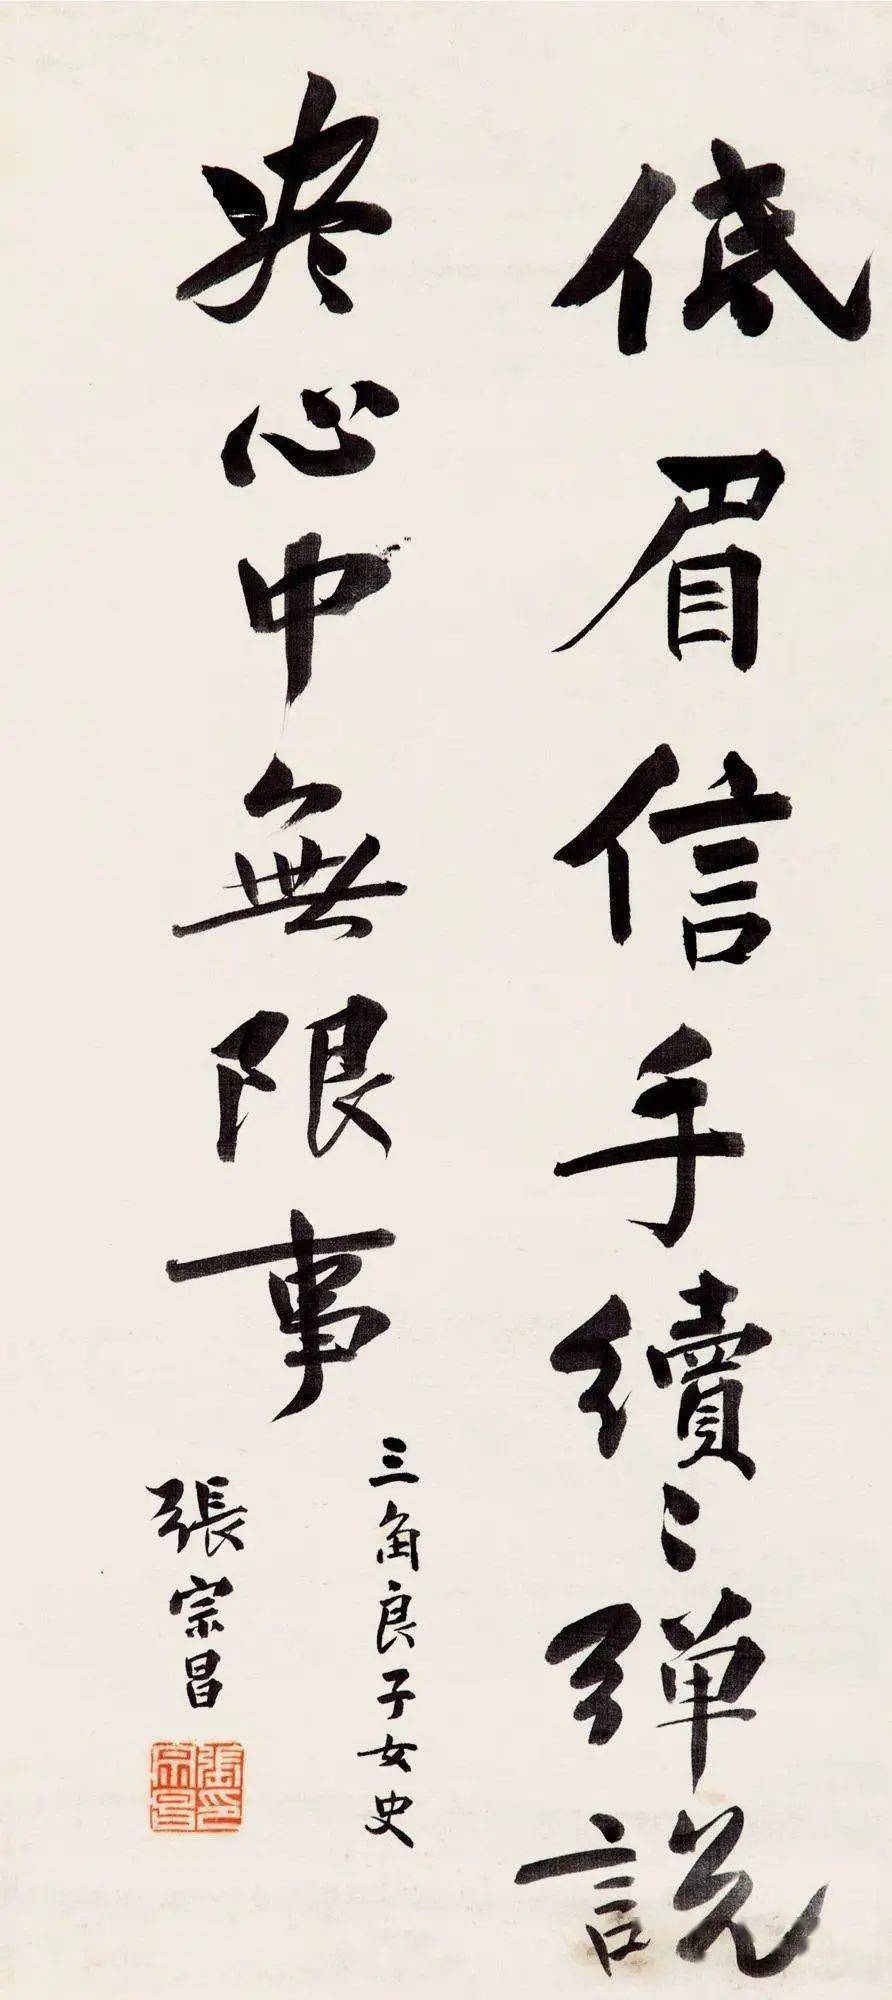 低眉信手續〻弹説
尽心中無限事
三角良子女史
張宗昌
張宗昌印